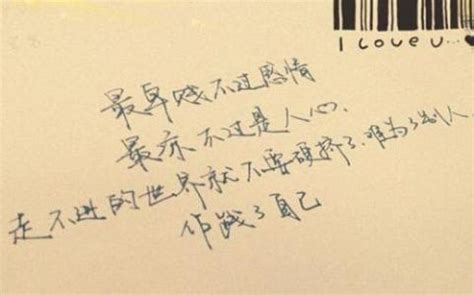 I Love U...
最卑贱不过感情
最凉不过是人心.
走不进的世界就不要硬挤了.难为了别人
作践了自己